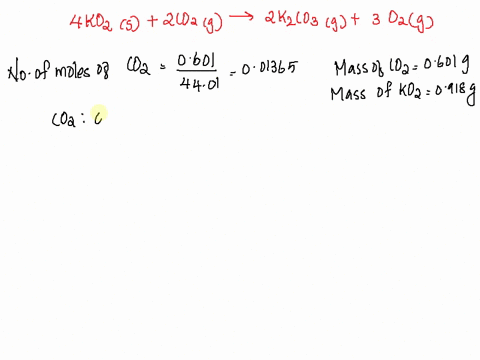 4KO₂ (s) + 2CO₂ (g) → 2K₂CO₃ (g) + 3 O₂ (g)
No. of moles of CO₂ = 0.601 / 44.01 = 0.01365
Mass of CO₂ = 0.601 g
Mass of KO₂ = 0.918 g
CO₂ : 0